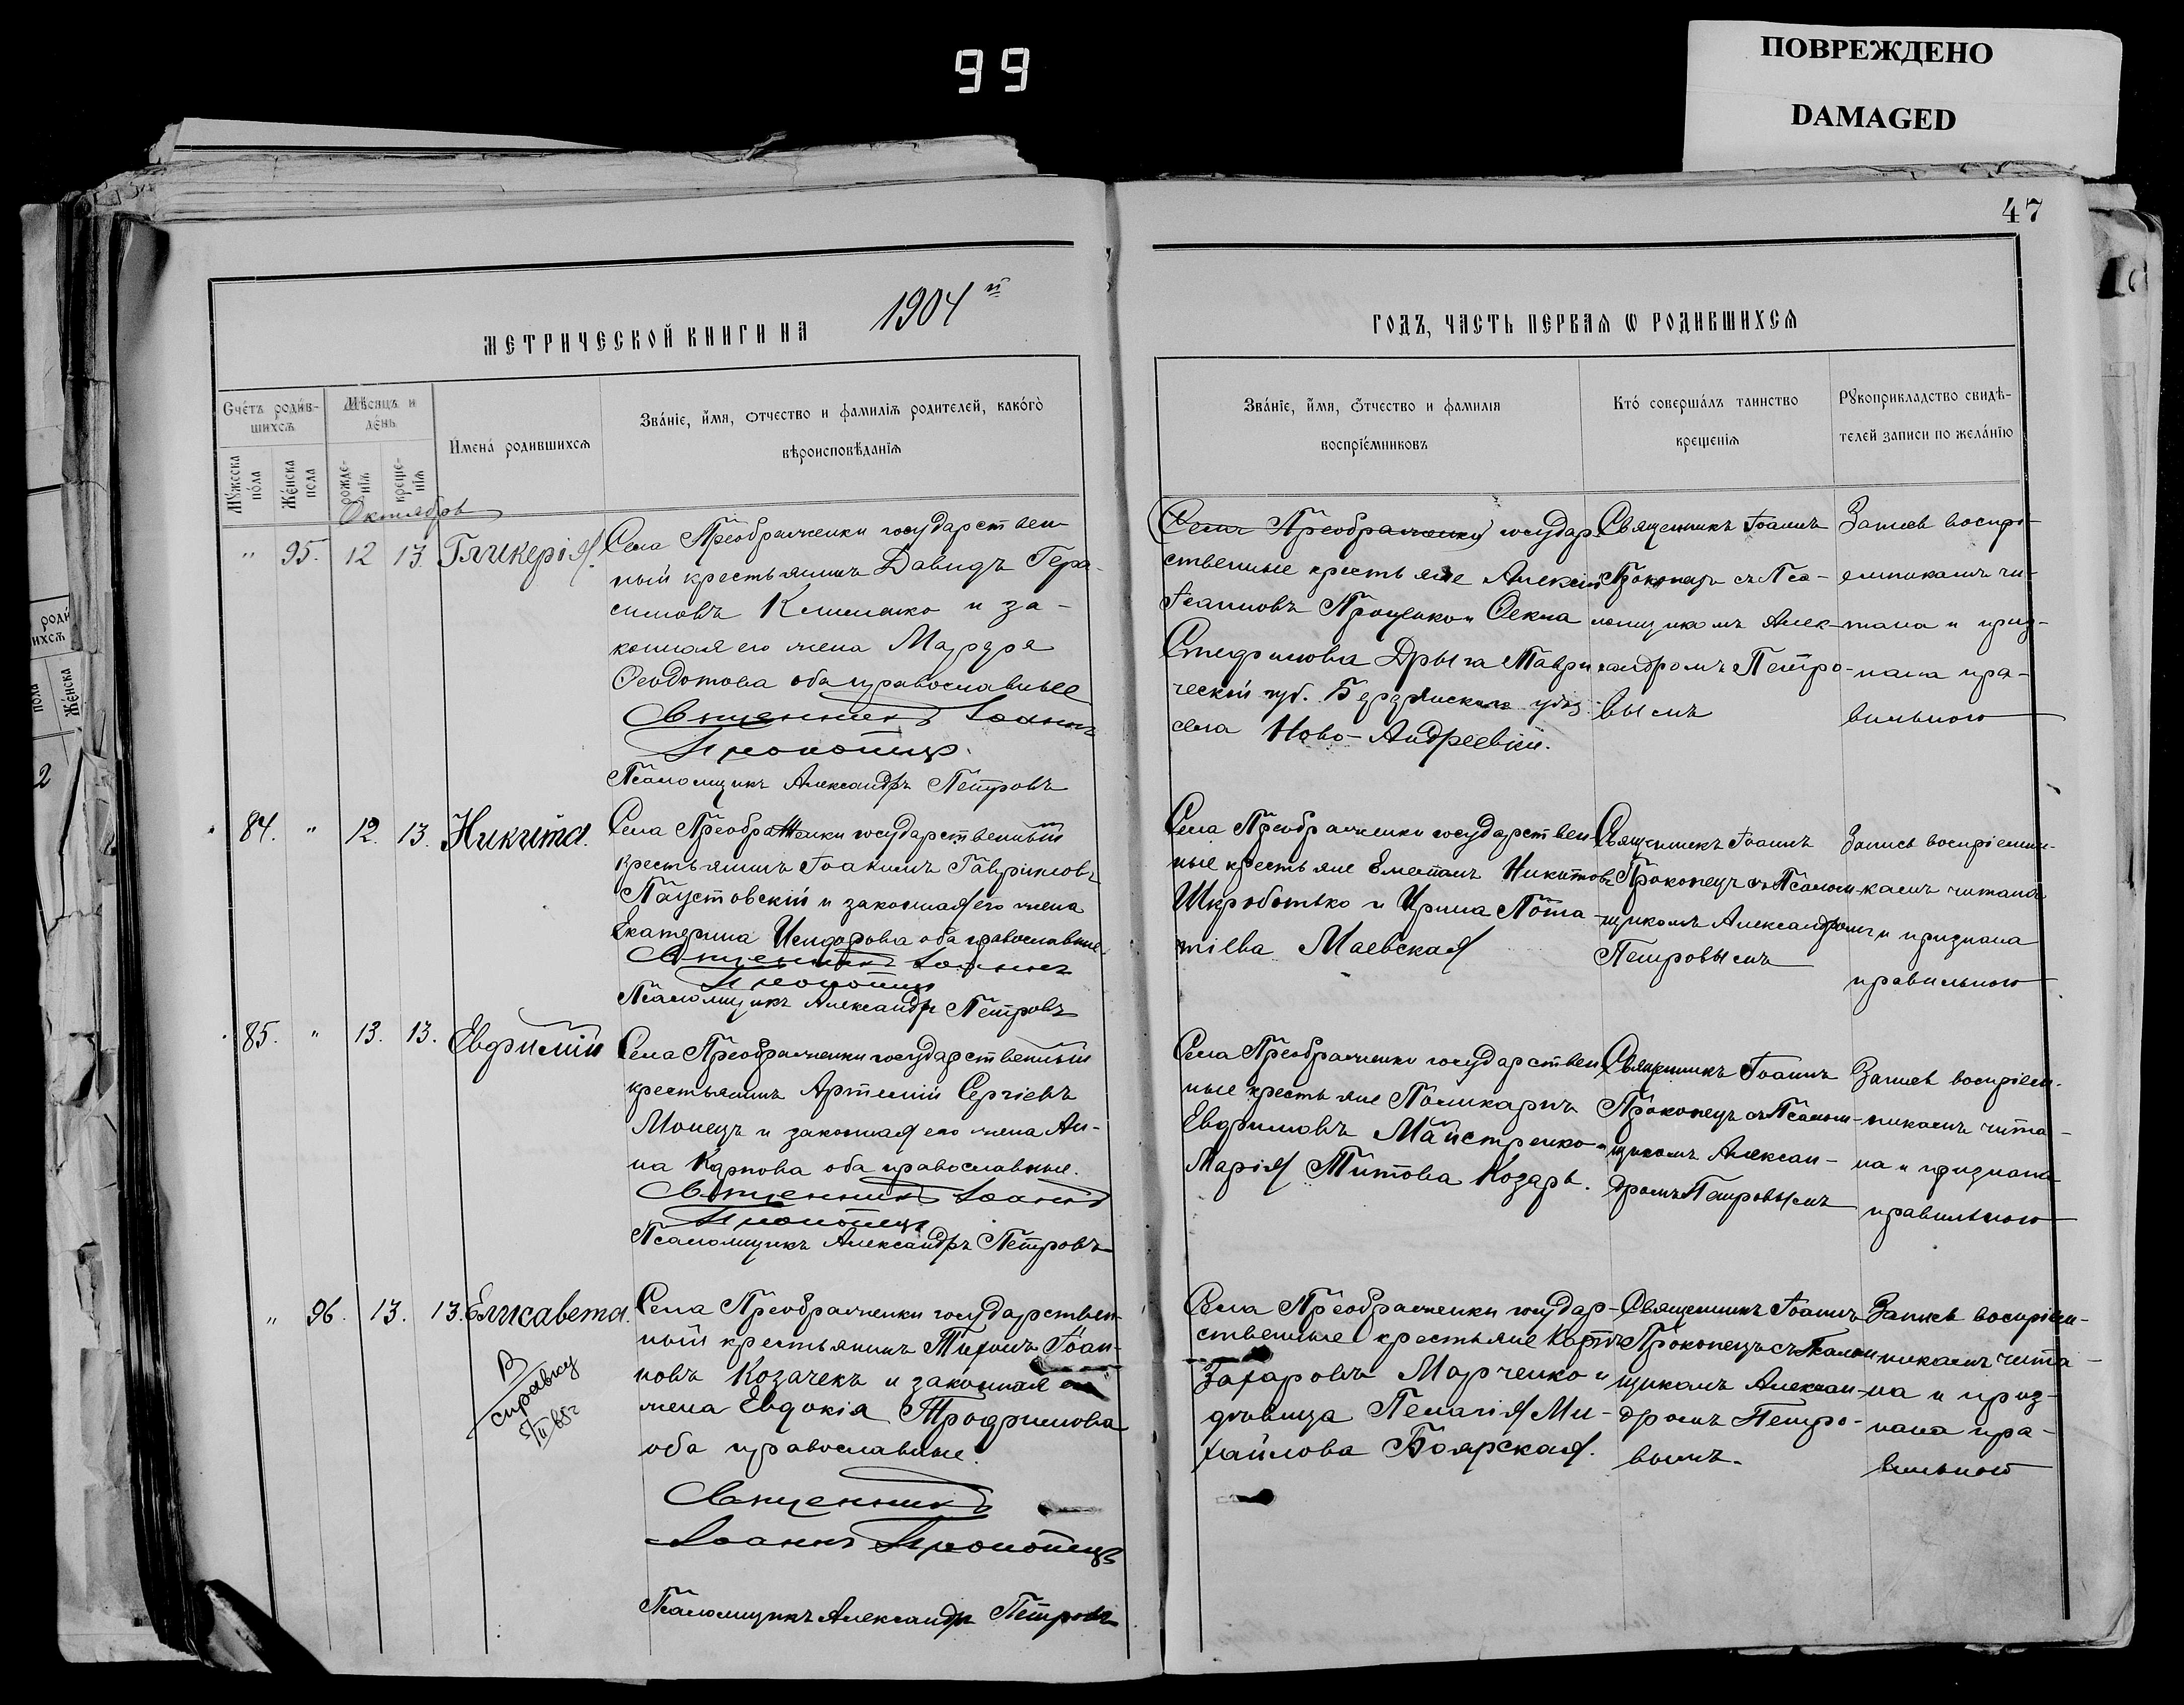 99
ПОВРЕЖДЕНО
DAMAGED
47
МЕТРИЧЕСКОЙ КНИГИ НА 1904 й
ГОДЪ, ЧАСТЬ ПЕРВАѦ Ѡ РОДИВШИХСѦ
Счéтъ роди́в-
шихсѧ
Мѣ́сяцъ и
дéнь
Мꙋ́жеска
по́ла
Жéнска
пола
рожде-
нїѧ
креще-
нїѧ
И҆мена́ родившихсѧ
Зва́нїе, и҆́мя, ѻтчество и фамилїѧ родителей, како́гѡ
вѣроисповѣ́данїѧ
Зва́нїе, и҆́мя, ѻ҆́тчество и фамилїя
воспрїе́мниковъ
Кто́ соверша́лъ таинство
крещенїѧ
Рꙋкоприкладство свидѣ-
телей записи по жела́нїю
Октябрь
" 95. 12 13. Гликерія.
Села Преображенки государствен-
ный крестьянинъ Давидъ Гера-
симовъ Клименко и за-
конная его жена Марфа
Ѳеодотова оба православные
Священникъ Іоаннъ
Прокопецъ.
Псаломщикъ Александръ Петровъ
(Села Преображенки) государ-
ственные крестьяне Алексій
Іоанновъ Проценко и Ѳекла
Стефанова Дрыга Таври
ческой губ. Бердянскаго уѣз.
села Ново-Андреевки.
Священникъ Іоаннъ
Прокопецъ съ Пса-
ломщикомъ Алек-
сандромъ Петро-
вымъ
Запись воспрі-
емникамъ чи-
тана и приз-
нана пра-
вильною
84. " 12. 13. Никита.
Села Преображенки государственный
крестьянинъ Іоакимъ Гавриловъ
Паустовскій и законная его жена
Екатерина Исидорова оба православные.
Священникъ Іоаннъ
Прокопецъ
Псаломщикъ Александръ Петровъ
Села Преображенки государствен
ные крестьяне Никитовъ
Шкроботько и Ирина Пота-
піева Маевская
Священникъ Іоаннъ
Прокопецъ съ Псалом-
щикомъ Александромъ
Петровымъ
Запись воспріемни-
камъ читана
и признана
правильною
85. " 13. 13. Евфимій
Села Преображенки государственный
крестьянинъ Артемій Сергіевъ
Монецъ и законная его жена Ан-
на Карпова оба православные.
Священникъ Іоаннъ
Прокопецъ
Псаломщикъ Александръ Петровъ
Села Преображенки государствен
ные крестьяне Поликарпъ
Евфимовъ Майстренко и
Марія Титова Козарь.
Священникъ Іоаннъ
Прокопецъ съ Псалом-
щикомъ Алексан-
дромъ Петровымъ
Запись воспріем-
никамъ чита-
на и признана
правильною
" 96. 13. 13. Елисавета.
В
справку
Села Преображенки государствен-
ный крестьянинъ Тихонъ Іоан-
новъ Козачекъ и законная его
жена Евдокія Трофимова
оба православные.
Священникъ
Іоаннъ Прокопецъ
Псаломщикъ Александръ Петровъ
Села Преображенки государ-
ственные крестьяне Карпъ
Захаровъ Марченко и
дѣвица Пелагія Ми-
хайлова Боярская.
Священникъ Іоаннъ
Прокопецъ съ Псалом
щикомъ Алексан-
дромъ Петро-
вымъ.
Запись воспріем-
никамъ чита-
на и приз-
нана пра-
вильной
2